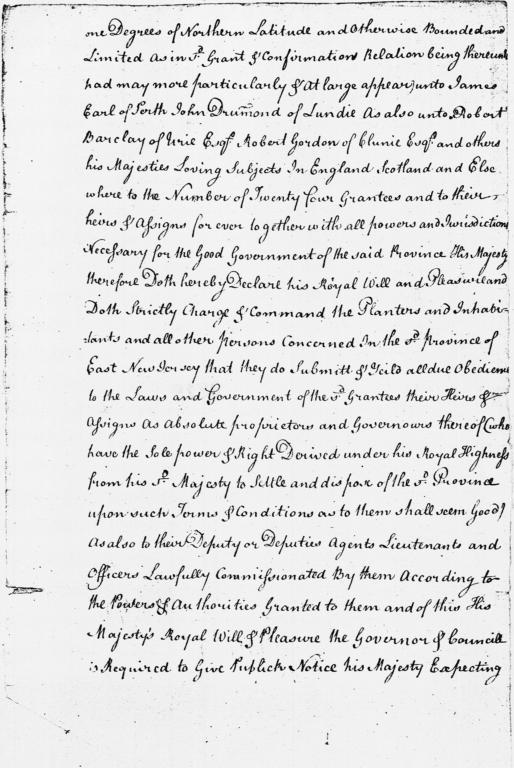 one Degrees of Northern Latitude and Otherwise Bounded and
Limited As in sd. Grant & Confirmation Relation being thereunto
had may more particularly & At large appear) unto James
Earl of Perth John Drumond of Lundie As also unto Robert
Barclay of Urie Esqr. Robert Gordon of Clunie Esqr. and others
his Majesties Loving Subjects In England Scotland and Else
where to the Number of Twenty four Grantees and to their
heirs & Assigns for ever together with all powers and Jurisdictions
Necessary for the Good Government of the said Province His Majesty
therefore Doth hereby Declare his Royal Will and Pleasure and
Doth Strictly Charge & Command the Planters and Inhabi-
tants and all other persons Concerned In the sd. province of
East New Jersey that they do Submitt & Yeild all due Obedience
to the Laws and Government of the sd. Grantees their Heirs &
Assigns As absolute proprietors and Governours thereof (who
have the Sole power & Right Derived under his Royal Highness
from his sd. Majesty to Settle and dispose of the sd. Province
upon such Terms & Conditions as to them shall seem Good)
As also to their Deputy or Deputies Agents Lieutenants and
Officers Lawfully Commissionated By them According to
the Powers & Authorities Granted to them and of this His
Majesty's Royal Will & Pleasure the Governor & Councill
is Required to Give Publick Notice his Majesty Expecting